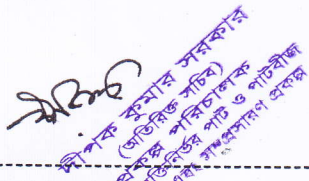 দীপক কুমার সরকার
(অতিরিক্ত সচিব)
প্রকল্প পরিচালক
পাট ও পাটবীজ
সম্প্রসারণ প্রকল্প